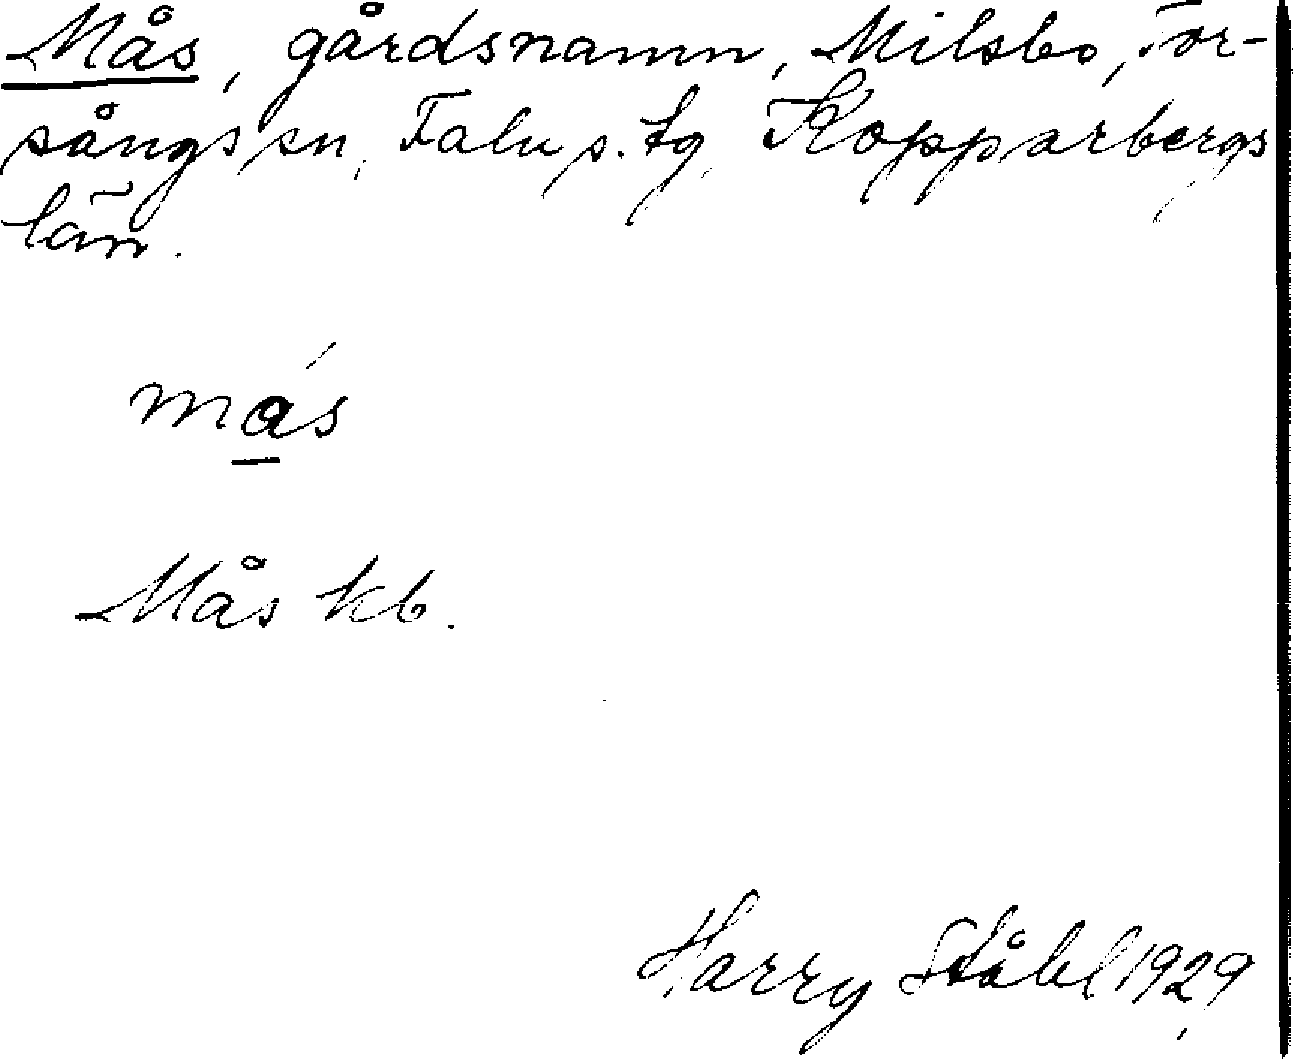 Mås, gårdsnamn, Milsbo, Tor-
sångs sn, Falu s. tg, Kopparbergs
län.
ma̲s´
Mås kb.
Harry Ståhl 1929